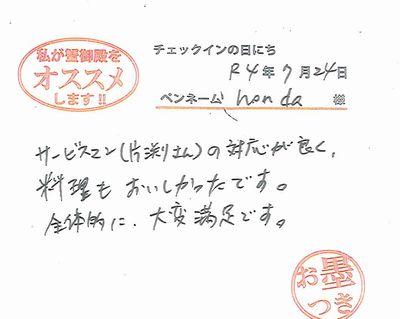 私が蟹御殿を
オススメ
します!!
チェックインの日にち
R4年7月24日
ペンネーム honda 様
サービスマン(片渕さん)の対応が良く、
料理もおいしかったです。
全体的に、大変満足です。
お墨
つき